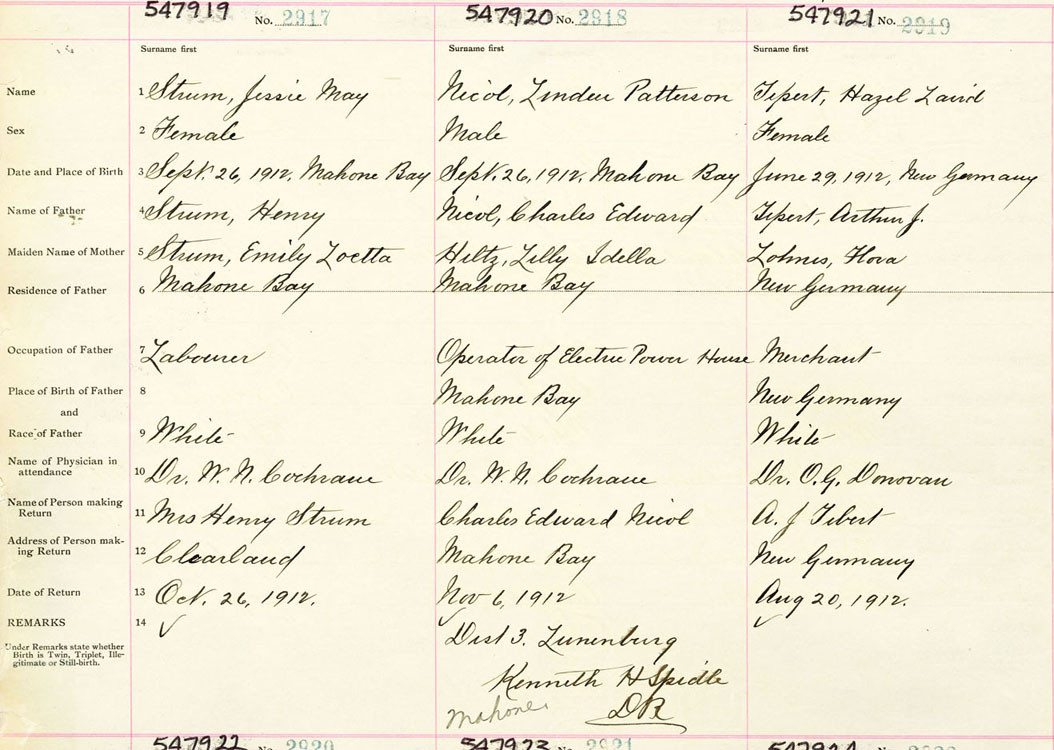 547919 No. 2917 547920 No. 2918 547921 No. 2919
Surname first Surname first Surname first
Name 1 Strum, Jessie May Nicol, Linden Patterson Tipert, Hazel Laird
Sex 2 Female Male Female
Date and Place of Birth 3 Sept. 26, 1912, Mahone Bay Sept. 26, 1912, Mahone Bay June 29, 1912, New Germany
Name of Father 4 Strum, Henry Nicol, Charles Edward Tipert, Arthur J.
Maiden Name of Mother 5 Strum, Emily Zoetta Hiltz, Lilly Idella Lohnes, Flora
Residence of Father 6 Mahone Bay Mahone Bay New Germany
Occupation of Father 7 Labourer Operator of Electric Power House Merchant
Place of Birth of Father 8 Mahone Bay New Germany
and
Race of Father 9 White White White
Name of Physician in
attendance 10 Dr. W. N. Cochrane Dr. W. N. Cochrane Dr. O. G. Donovan
Name of Person making
Return 11 Mrs Henry Strum Charles Edward Nicol A. J Tibert
Address of Person mak-
ing Return 12 Clearland Mahone Bay New Germany
Date of Return 13 Oct. 26, 1912. Nov 6, 1912 Aug 20, 1912.
REMARKS 14
Under Remarks state whether
Birth is Twin, Triplet, Ille-
gitimate or Still-birth.
Dist 3. Lunenburg
Kenneth H Spidle
Mahone DR
547922 No. 2920 547923 No. 2921 547924 No.